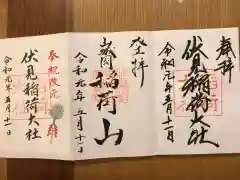 奉拝
伏見稲荷大社
令和元年五月十一日
登拝
稲荷山
令和元年五月十一日
奉祝改元
伏見稲荷大社
令和元年五月十一日